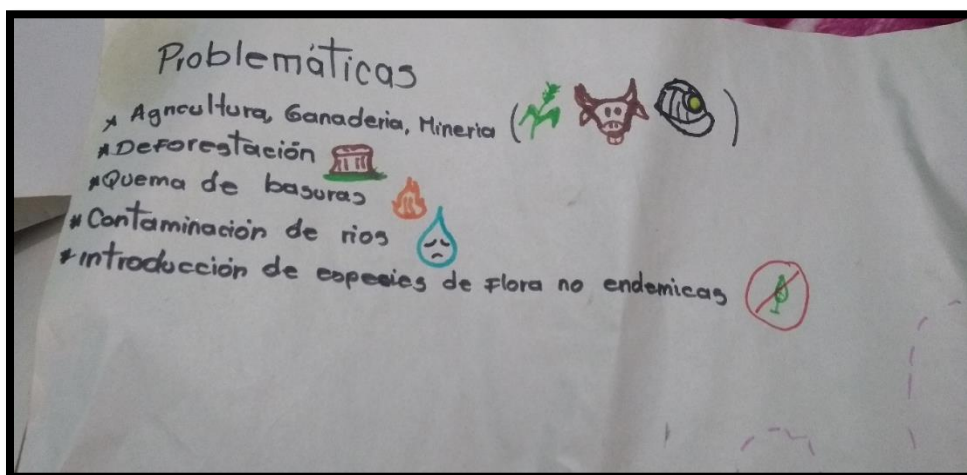 Problemáticas
* Agricultura, Ganaderia, Mineria ( )
* Deforestación
* Quema de basuras
* Contaminación de rios
* introducción de especies de Flora no endemicas